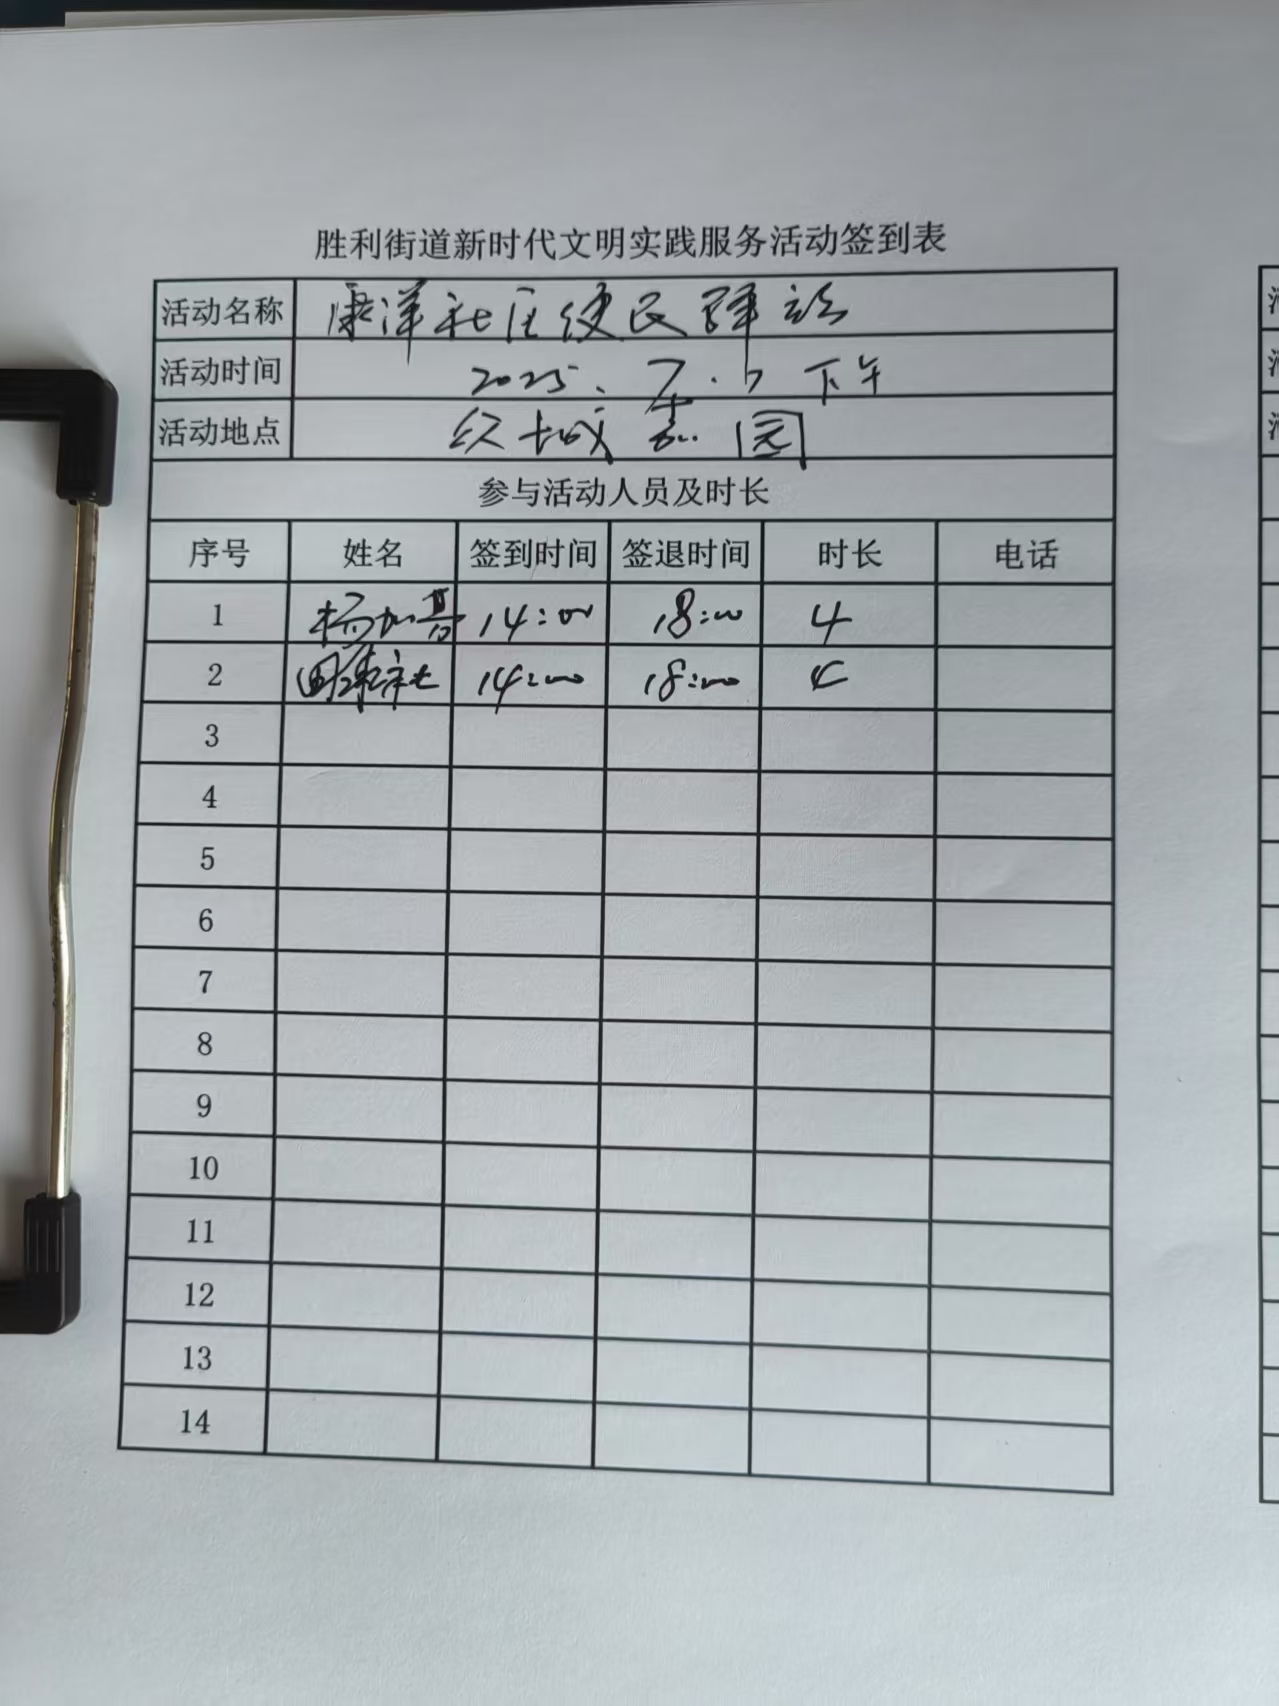 胜利街道新时代文明实践服务活动签到表
活动名称 康洋社区便民驿站
活动时间 2025.7.6 下午
活动地点 嘉园
参与活动人员及时长
序号 姓名 签到时间 签退时间 时长 电话
1 杨加 14:00 18:00 4
2 14:00 18:00 4
3
4
5
6
7
8
9
10
11
12
13
14